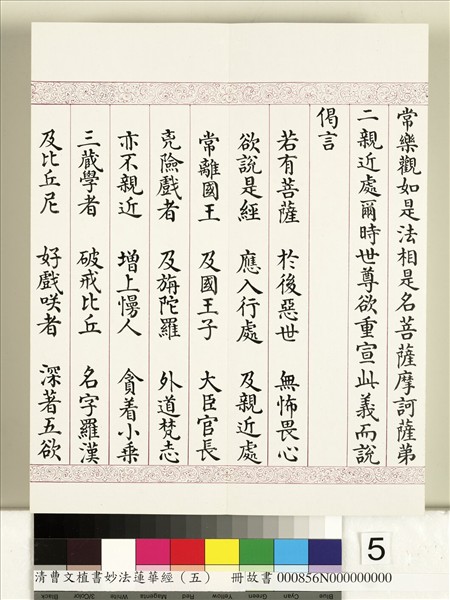 常樂觀如是法相是名菩薩摩訶薩第
二親近處爾時世尊欲重宣此義而說
偈言
若有菩薩 於後惡世 無怖畏心
欲說是經 應入行處 及親近處
常離國王 及國王子 大臣官長
兇險戲者 及旃陀羅 外道梵志
亦不親近 增上慢人 貪着小乘
三藏學者 破戒比丘 名字羅漢
及比丘尼 好戲咲者 深著五欲
5
Black 3/Color White Magenta Red Yellow Green Cyan Blue
清曹文植書妙法蓮華經（五） 冊故書 000856N000000000